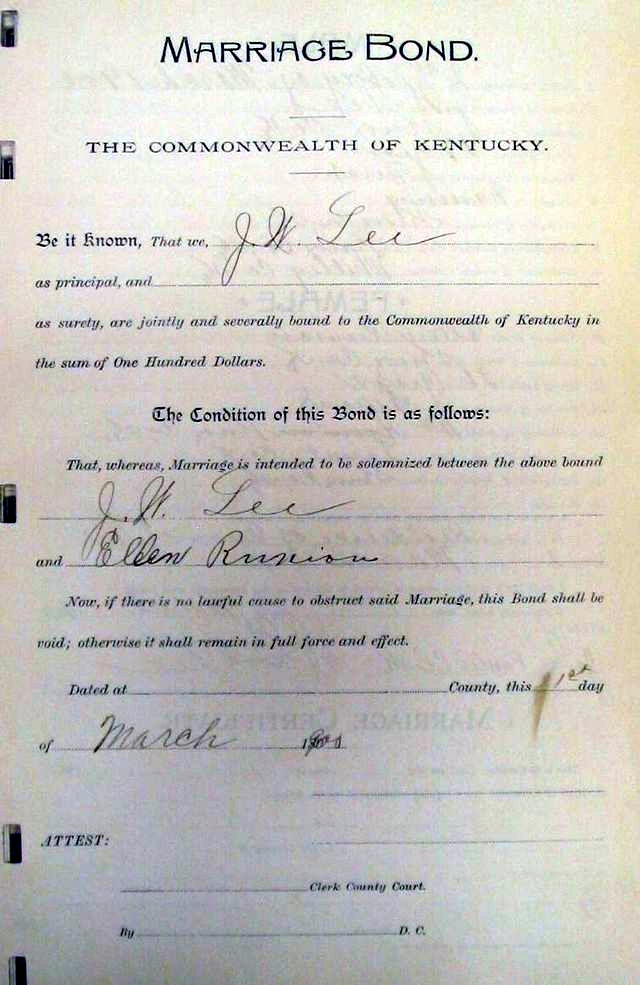 MARRIAGE BOND.
THE COMMONWEALTH OF KENTUCKY.
Be it Known, That we, J. W. Lee
as principal, and
as surety, are jointly and severally bound to the Commonwealth of Kentucky in
the sum of One Hundred Dollars.
The Condition of this Bond is as follows:
That, whereas, Marriage is intended to be solemnized between the above bound
J. W. Lee
and Ellen Runion
Now, if there is no lawful cause to obstruct said Marriage, this Bond shall be
void; otherwise it shall remain in full force and effect.
Dated at County, this 1st day
of March
ATTEST:
Clerk County Court.
By D. C.